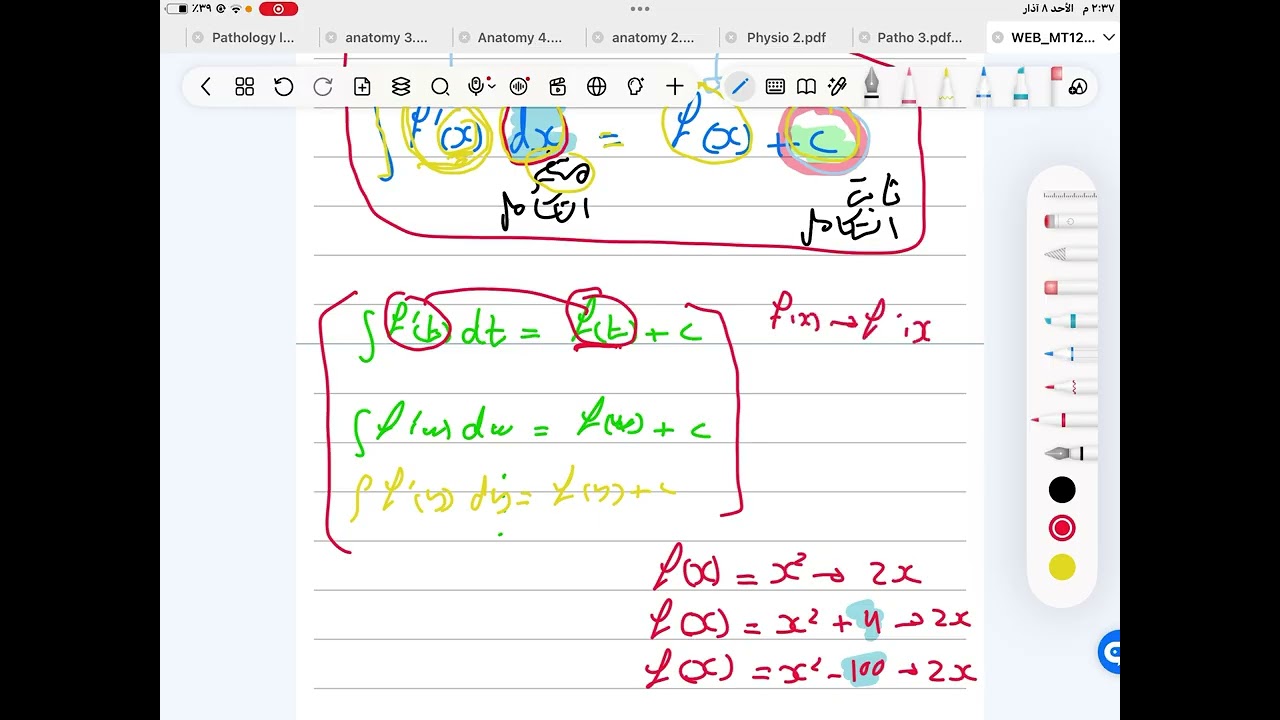 ٪٣٩ ٢:٣٧ م الأحد ٨ آذار
Pathology l... anatomy 3.... Anatomy 4.... anatomy 2.... Physio 2.pdf Patho 3.pdf... WEB_MT12...
∫ f'(x) dx = f(x) + c
ثابت
التكامل
∫ f'(t) dt = f(t) + c
f(x) → f'(x
∫ f'(w) dw = f(w) + c
∫ f'(y) dy = f(y) + c
f(x) = x² → 2x
f(x) = x² + 4 → 2x
f(x) = x² - 100 → 2x